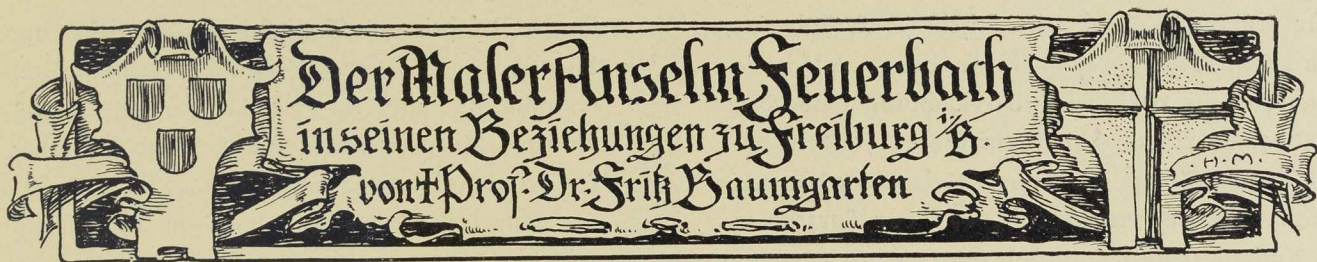 Der Maler Anselm Feuerbach
in seinen Beziehungen zu Freiburg i/B.
von † Prof. Dr. Fritz Baumgarten
·H·M·